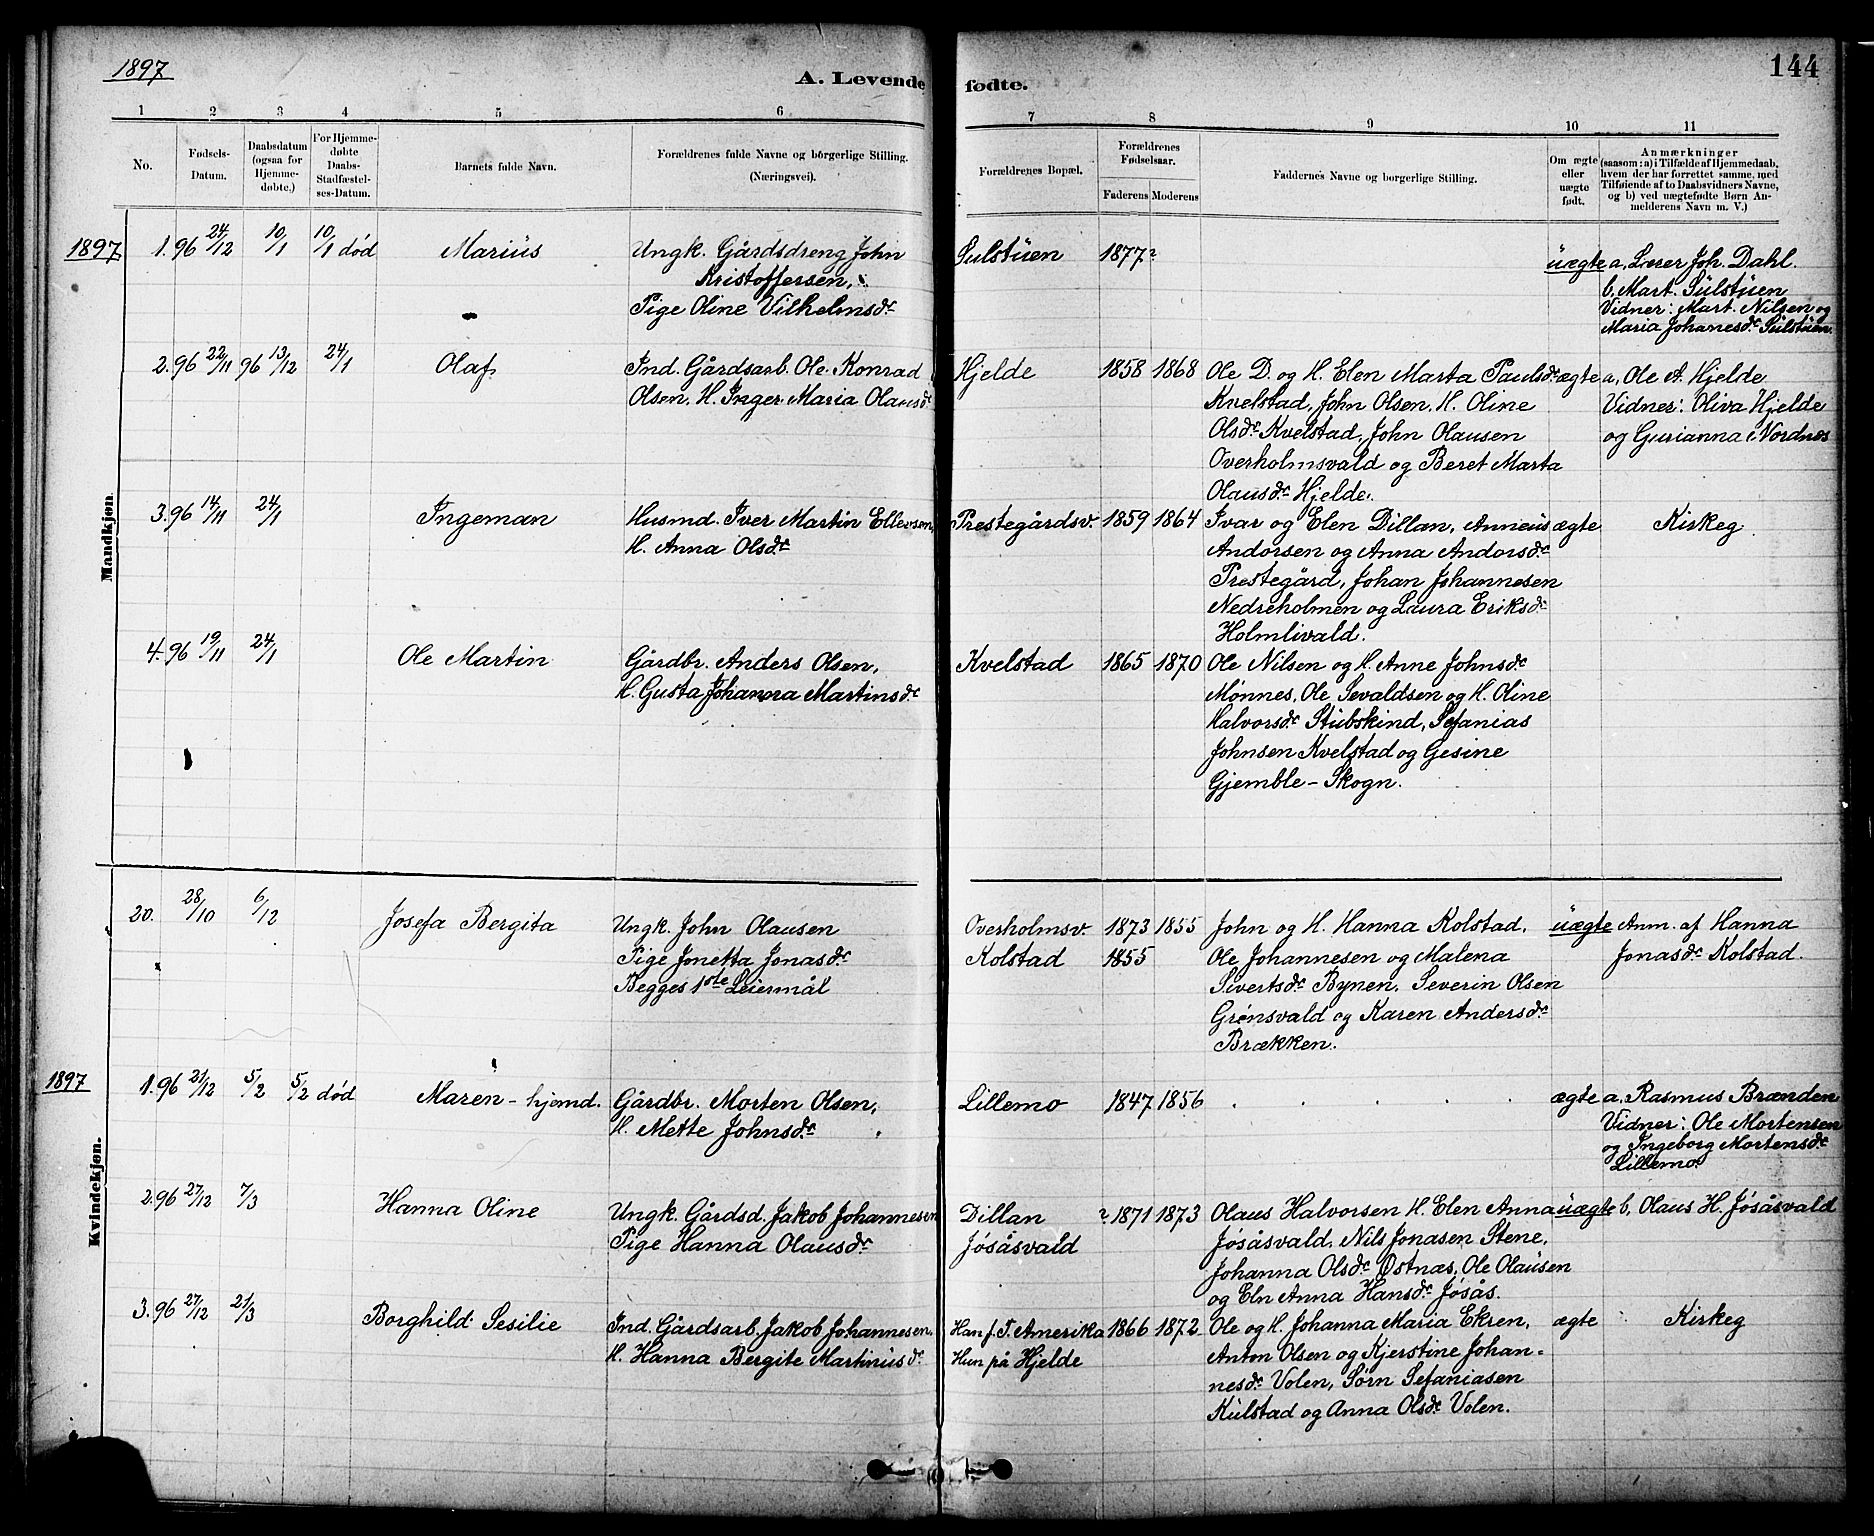 1897
A. Levende fødte.
144
1 2 3 4 5 6 7 8 9 10 11
No.
Fødsels-
Datum.
Daabsdatum
(ogsaa for
Hjemme-
døbte.)
For Hjemme-
døbte
Daabs-
Stadfæstel-
ses-Datum.
Barnets fulde Navn.
Forældrenes fulde Navne og borgerlige Stilling.
(Næringsvei).
Forældrenes Bopæl.
Forældrenes
Fødselsaar.
Faderens Moderens
Faddernes Navne og borgerlige Stilling.
Om ægte
eller
uægte
født.
Anmærkninger
(saasom: a) i Tilfælde af Hjemmedaab,
hvem der har forrettet samme, med
Tilføiende af to Daabsvidners Navne,
og b) ved uægtefødte Børn An-
melderens Navn m. V.)
Mandkjøn.
1897 1. 96 24/12 10/1 10/1 død Marius
Ungk. Gårdsdreng John
Kristoffersen,
Pige Oline Vilhelmsdr
Sulstuen 1877?
uægte a, Lærer Joh. Dahl.
b, Mart. Sulstuen
Vidner: Mart. Nilsen og
Maria Johanesdr Sulstuen.
2. 96 22/11 96 13/12 24/1 Olaf
Ind. Gårdsarb. Ole Konrad
Olsen, H. Inger Maria Olausdr
Hjelde 1858 1868
Ole D. og H. Elen Marta Paulsdr
Kvelstad, John Olsen, H. Oline
Olsdr Kvelstad, John Olausen
Overholmsvald og Beret Marta
Olausdr Hjelde.
ægte a, Ole A. Hjelde
Vidner: Oliva Hjelde
og Gurianna Nordnes
3. 96 14/11 24/1 Ingeman
Husmd. Iver Martin Ellevsen,
H. Anna Olsdr
Prestegårdsv. 1859 1864
Ivar og Elen Dillan, Anneus
Andorsen og Anna Andorsdr
Prestegård, Johan Johannesen
Nedreholmen og Laura Eriksdr
Holmlivald.
ægte Kirkeg.
4. 96 19/11 24/1 Ole Martin
Gårdbr. Anders Olsen,
H. Gusta Johanna Martinsdr
Kvelstad 1865 1870
Ole Nilsen og H. Anne Johnsdr
Mønnes, Ole Sevaldsen og H. Oline
Halvorsdr Stubskind, Sefanias
Johnsen Kvelstad og Gesine
Gjemble - Skogn.
Kvindekjøn.
20. 28/10 6/12 Josefa Bergita
Ungk. John Olausen
Pige Jonetta Jonasdr
Begges 1ste Leiermål
Overholmsv. 1873 1855
Kolstad 1855
John og H. Hanna Kolstad,
Ole Johannesen og Malena
Sivertsdr Bynen, Severin Olsen
Grønsvald og Karen Andersdr
Brækken.
uægte Anm. af Hanna
Jonasdr Kolstad.
1897 1. 96 21/12 5/2 5/2 død Maren - hjemd.
Gårdbr. Morten Olsen,
H. Mette Johnsdr
Lillemo 1847 1856
ægte a, Rasmus Brænden
Vidner: Ole Mortensen
og Ingeborg Mortensdr
Lillemo.
2. 96 27/12 7/3 Hanna Oline
Ungk. Gårdsd. Jakob Johannesen
Pige Hanna Olausdr
Dillan ?1871 1873
Jøsåsvald
Olaus Halvorsen H. Elen Anna
Jøsåsvald, Nils Jonasen Stene,
Johanna Olsdr Østnæs, Ole Olausen
og Eln Anna Hansdr Jøsås.
uægte b, Olaus H. Jøsåsvald
3. 96 27/12 21/3 Borghild Sesilie
Ind. Gårdsarb. Jakob Johannesen,
H. Hanna Bergite Martinusdr
Han f. T. Amerika 1866 1872
Hun på Hjelde
Ole og H. Johanna Maria Ekren,
Anton Olsen og Kjerstine Johan-
nesdr Volen, Sørn Sefaniasen
Kulstad og Anna Olsdr Volen.
ægte Kirkeg